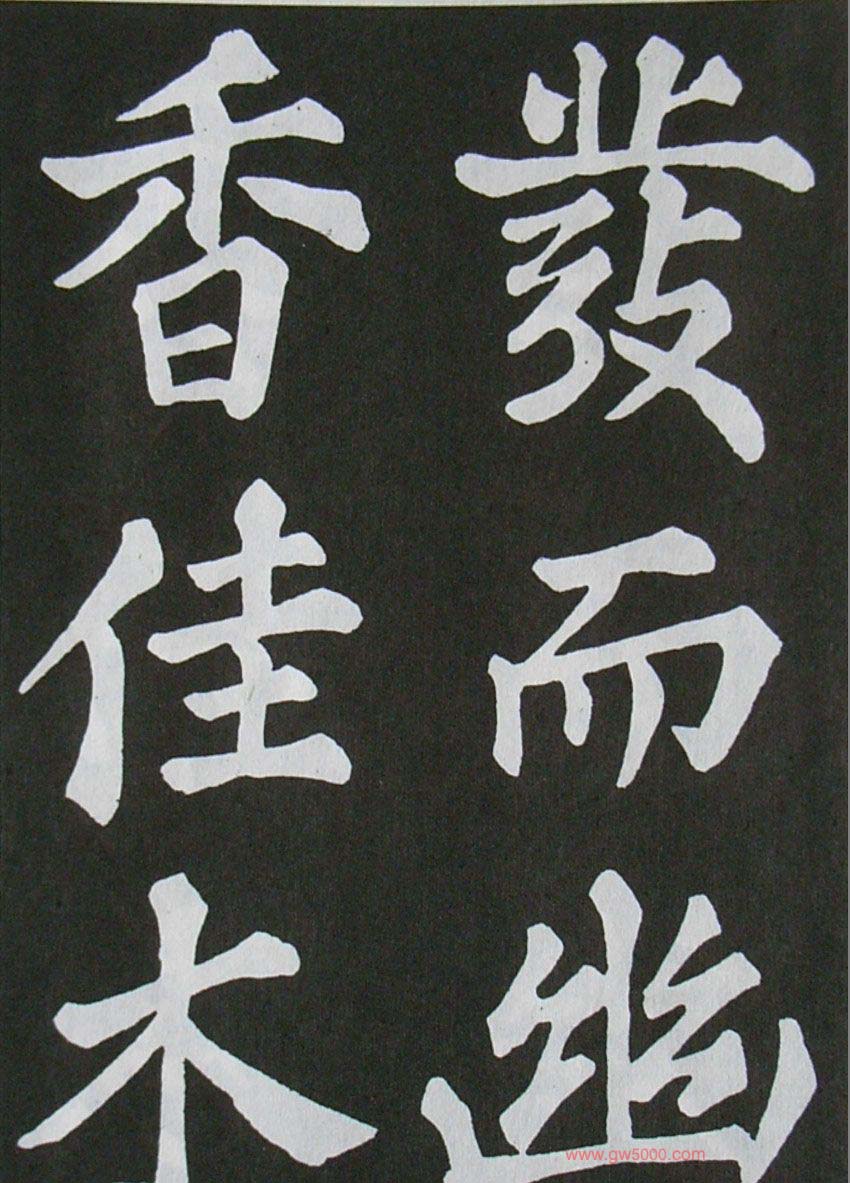 發而幽
香佳木
www.gw5000.com